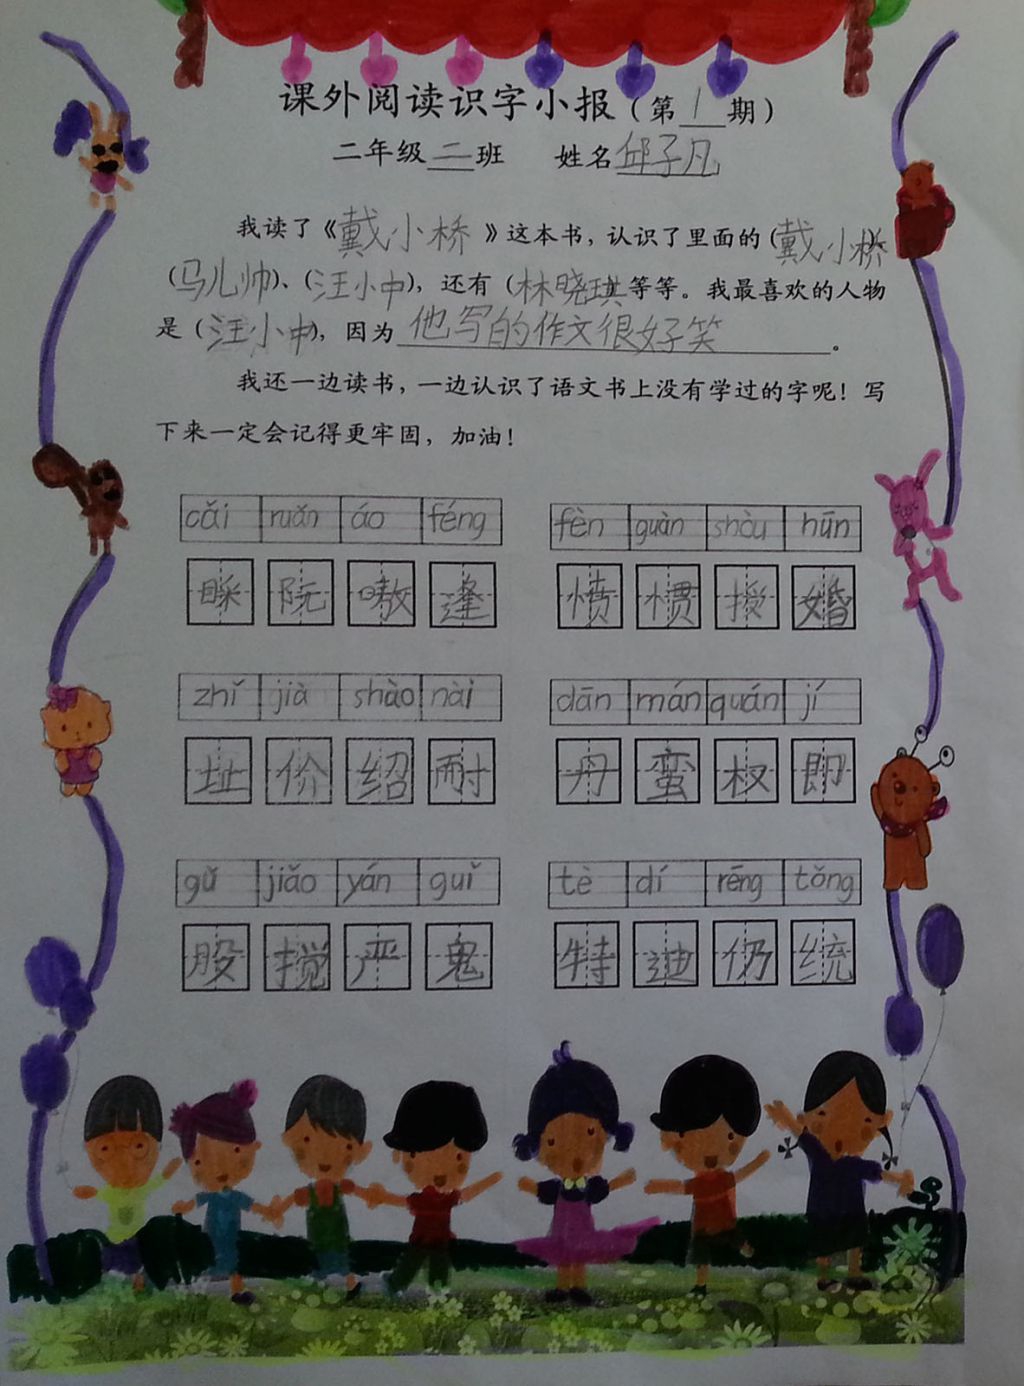 课外阅读识字小报（第1期）
二年级二班 姓名邱子凡
我读了《戴小桥》这本书，认识了里面的(戴小桥)
(马儿帅)、(汪小中)，还有（林晓琪等等。我最喜欢的人物
是（汪小中），因为他写的作文很好笑。
我还一边读书，一边认识了语文书上没有学过的字呢！写
下来一定会记得更牢固，加油！
cǎi ruǎn áo féng fèn guàn shòu hūn
睬 阮 嗷 逢 愤 惯 授 婚
zhǐ jià shào nài dān mán quán jí
址 价 绍 耐 丹 蛮 权 即
gǔ jiǎo yán guǐ tè dí rēng tǒng
股 搅 严 鬼 特 迪 仍 统